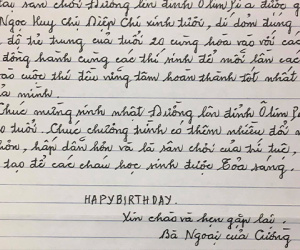 sân chơi Đường lên đỉnh Olimpia được
Ngọc Huy chị Diệp Chi xinh tươi, dí dỏm dùng
độ trẻ trung của tuổi 20 cùng hòa vào với các
đồng hành cùng các thí sinh để mỗi lần các
vào cuộc thi đều vững tâm hoàn thành tốt nhất
mình.
Chúc mừng sinh nhật Đường lên đỉnh Ôlim
tuổi. Chúc chương trình có thêm nhiều đổi
hơn, hấp dẫn hơn và là sân chơi của trí tuệ,
tạo để các cháu học sinh được Tỏa sáng.
HAPYBIRTHDAY.
Xin chào và hẹn gặp lại.
Bà Ngoại của Cường